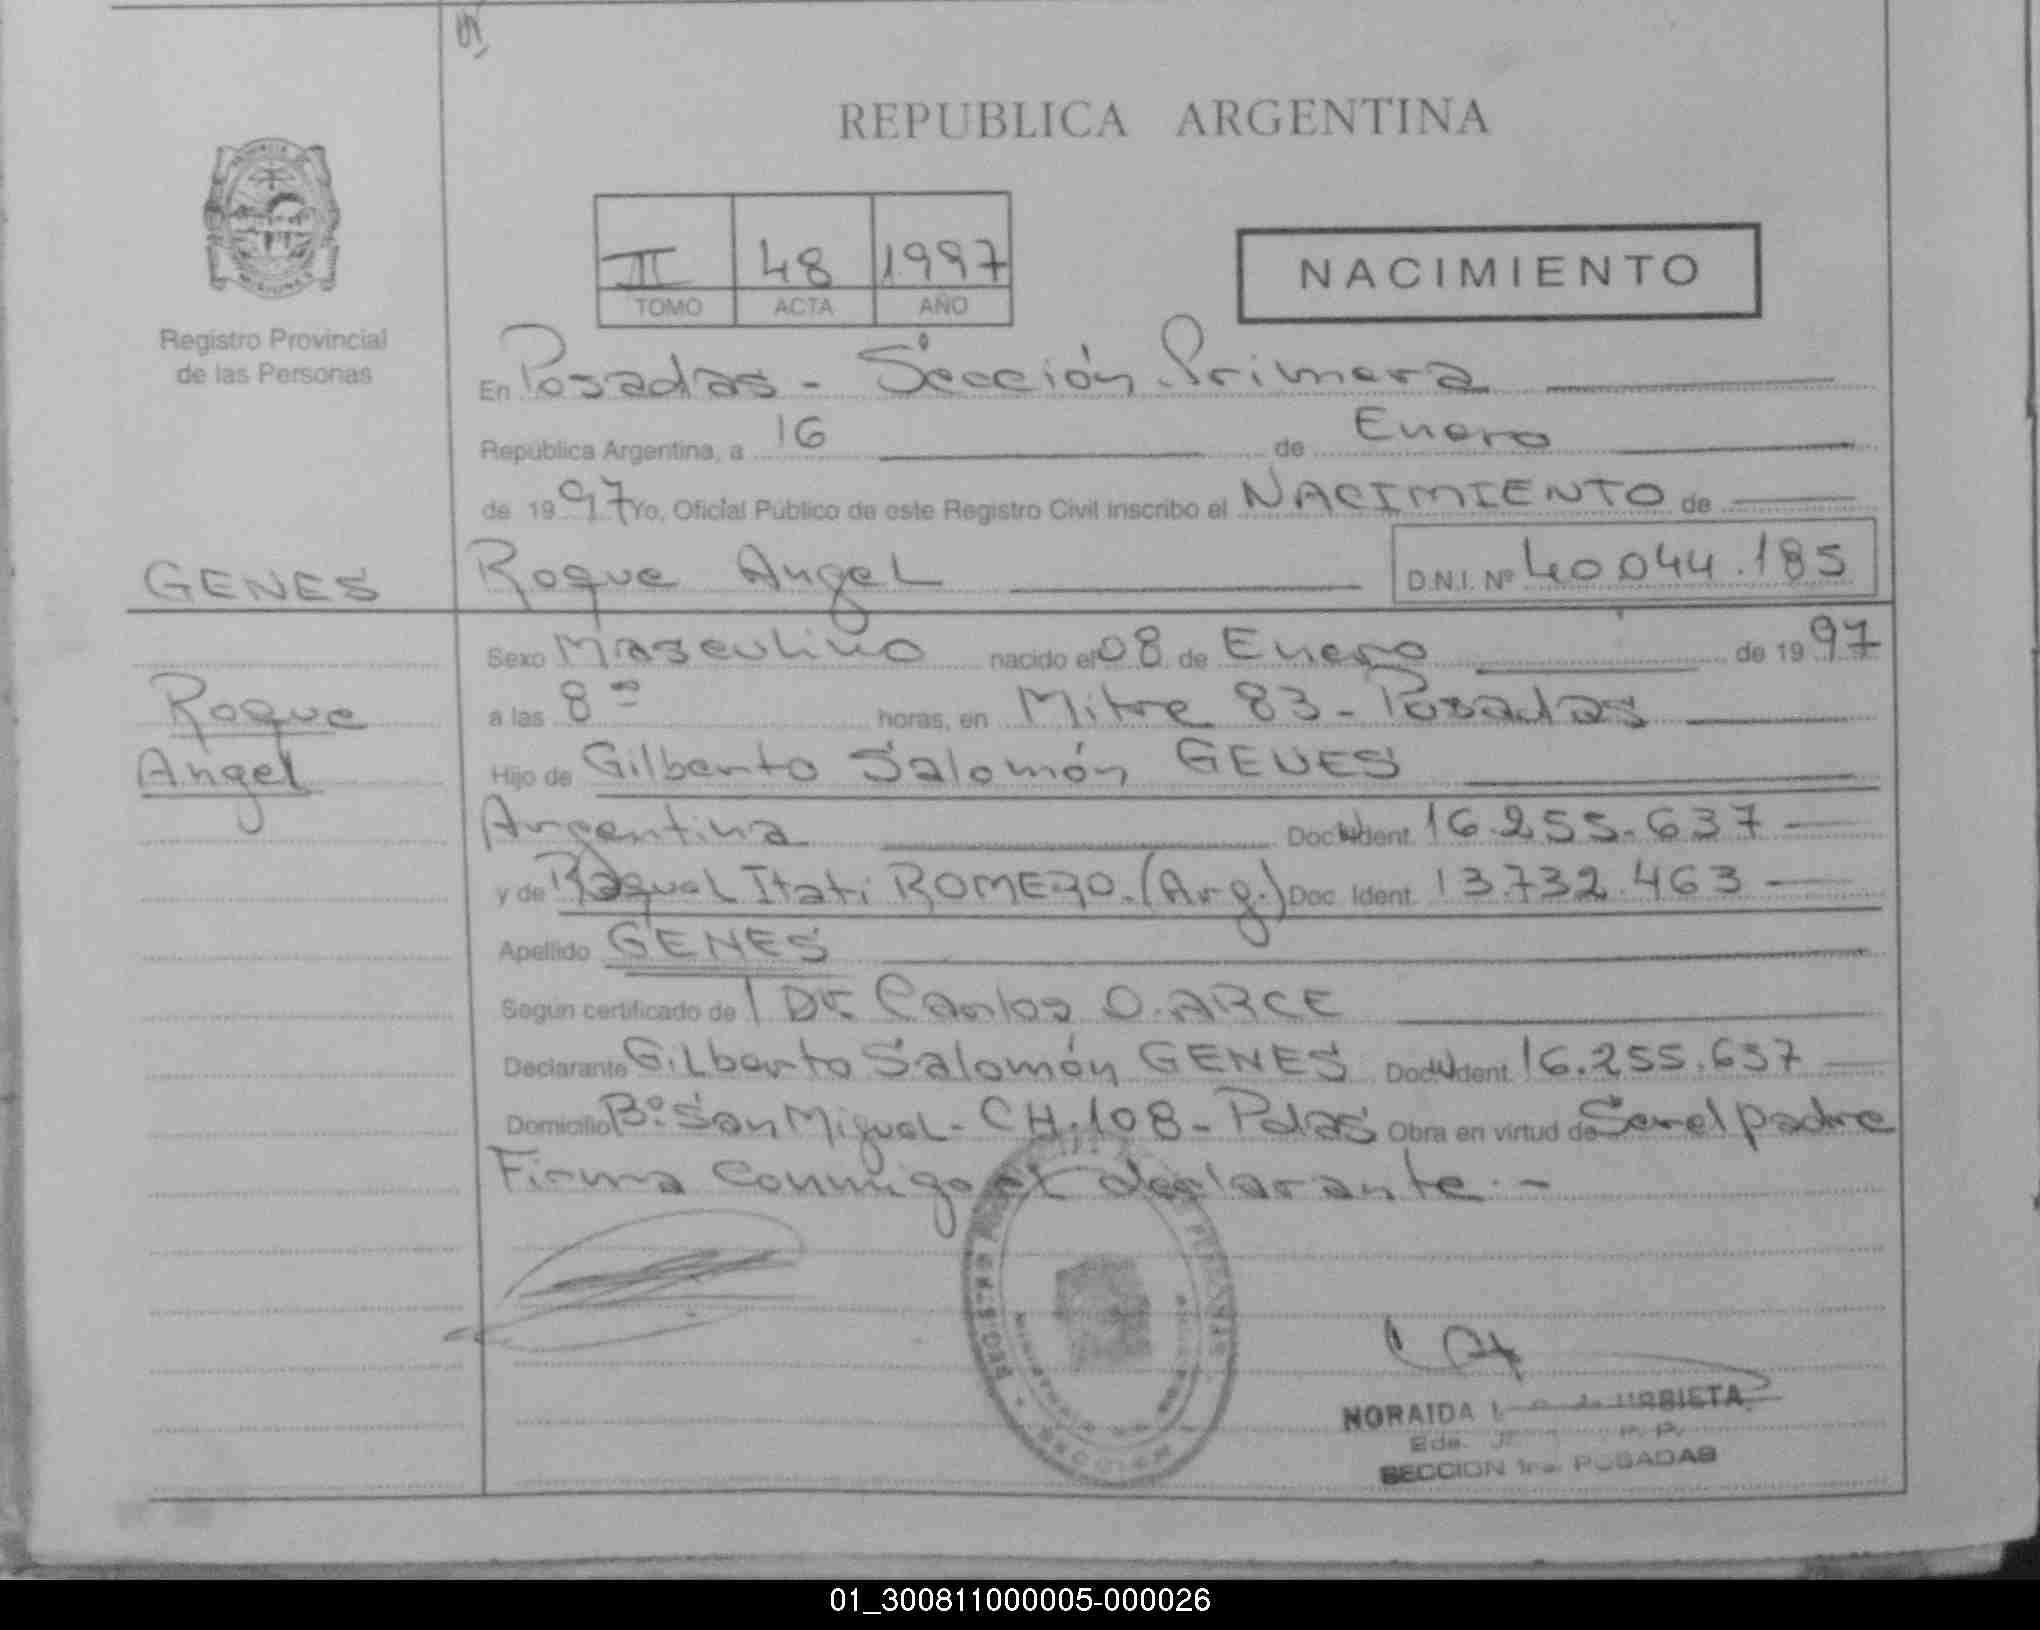 REPUBLICA ARGENTINA
II 48 1997
TOMO ACTA AÑO
NACIMIENTO
Registro Provincial
de las Personas
En Posadas - Sección Primera
República Argentina, a 16 de Enero
de 1997 Yo, Oficial Público de este Registro Civil inscribo el NACIMIENTO de
GENES
Roque Angel D.N.I. Nº 40.044.185
Sexo Masculino nacido el 08 de Enero de 1997
Roque
Angel
a las 8 horas, en Mitre 83 - Posadas
Hijo de Gilberto Salomón GENES
Argentina Doc. Ident. 16.255.637
y de Raquel Itati ROMERO. (Arg.) Doc. Ident. 13.732.463
Apellido GENES
Según certificado de Dr. Carlos O. ARCE
Declarante Gilberto Salomón GENES Doc. Ident. 16.255.637
Domicilio Bº San Miguel - CH. 108 - Pdas Obra en virtud de Ser el padre
Firma conmigo el declarante. -
NORAIDA URBIETA
SECCION 1ra. POSADAS
01_300811000005-000026